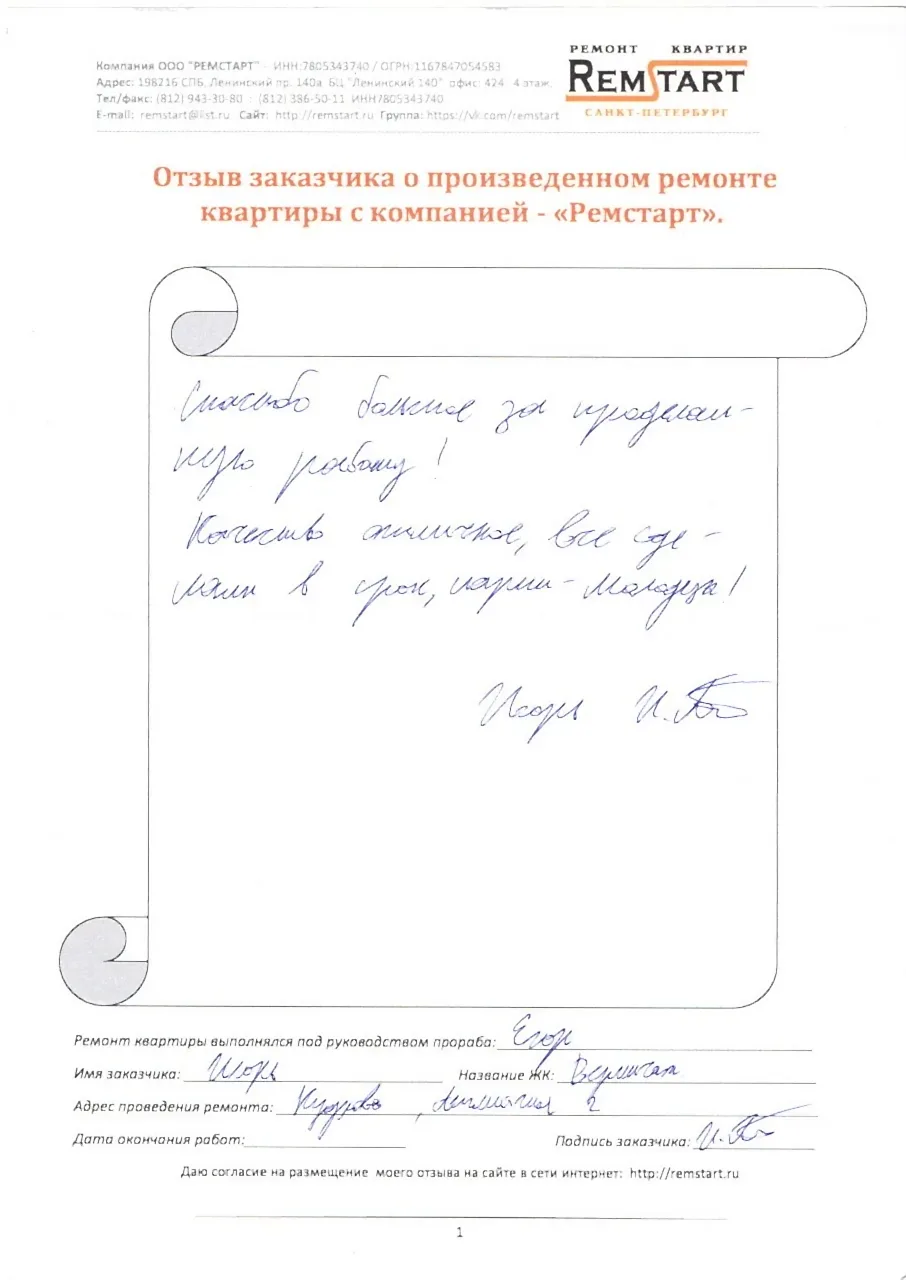 Компания ООО "РЕМСТАРТ" - ИНН:7805343740 / ОГРН:1167847054583
Адрес: 198216 СПБ, Ленинский пр. 140а БЦ "Ленинский 140" офис: 424 4 этаж.
Тел/факс: (812) 943-30-80 : (812) 386-50-11 ИНН7805343740
E-mail: remstart@list.ru Сайт: http://remstart.ru Группа: https://vk.com/remstart
РЕМОНТ КВАРТИР
REMSTART
САНКТ-ПЕТЕРБУРГ
Отзыв заказчика о произведенном ремонте
квартиры с компанией - «Ремстарт».
Спасибо большое за проделан-
ную работу!
Качество отличное, все сде-
лали в срок, парни - молодцы!
Игорь И.
Ремонт квартиры выполнялся под руководством прораба: Егор
Имя заказчика: Игорь Название ЖК:
Адрес проведения ремонта: Кудрово, 2
Дата окончания работ:
Подпись заказчика: И.
Даю согласие на размещение моего отзыва на сайте в сети интернет: http://remstart.ru
1